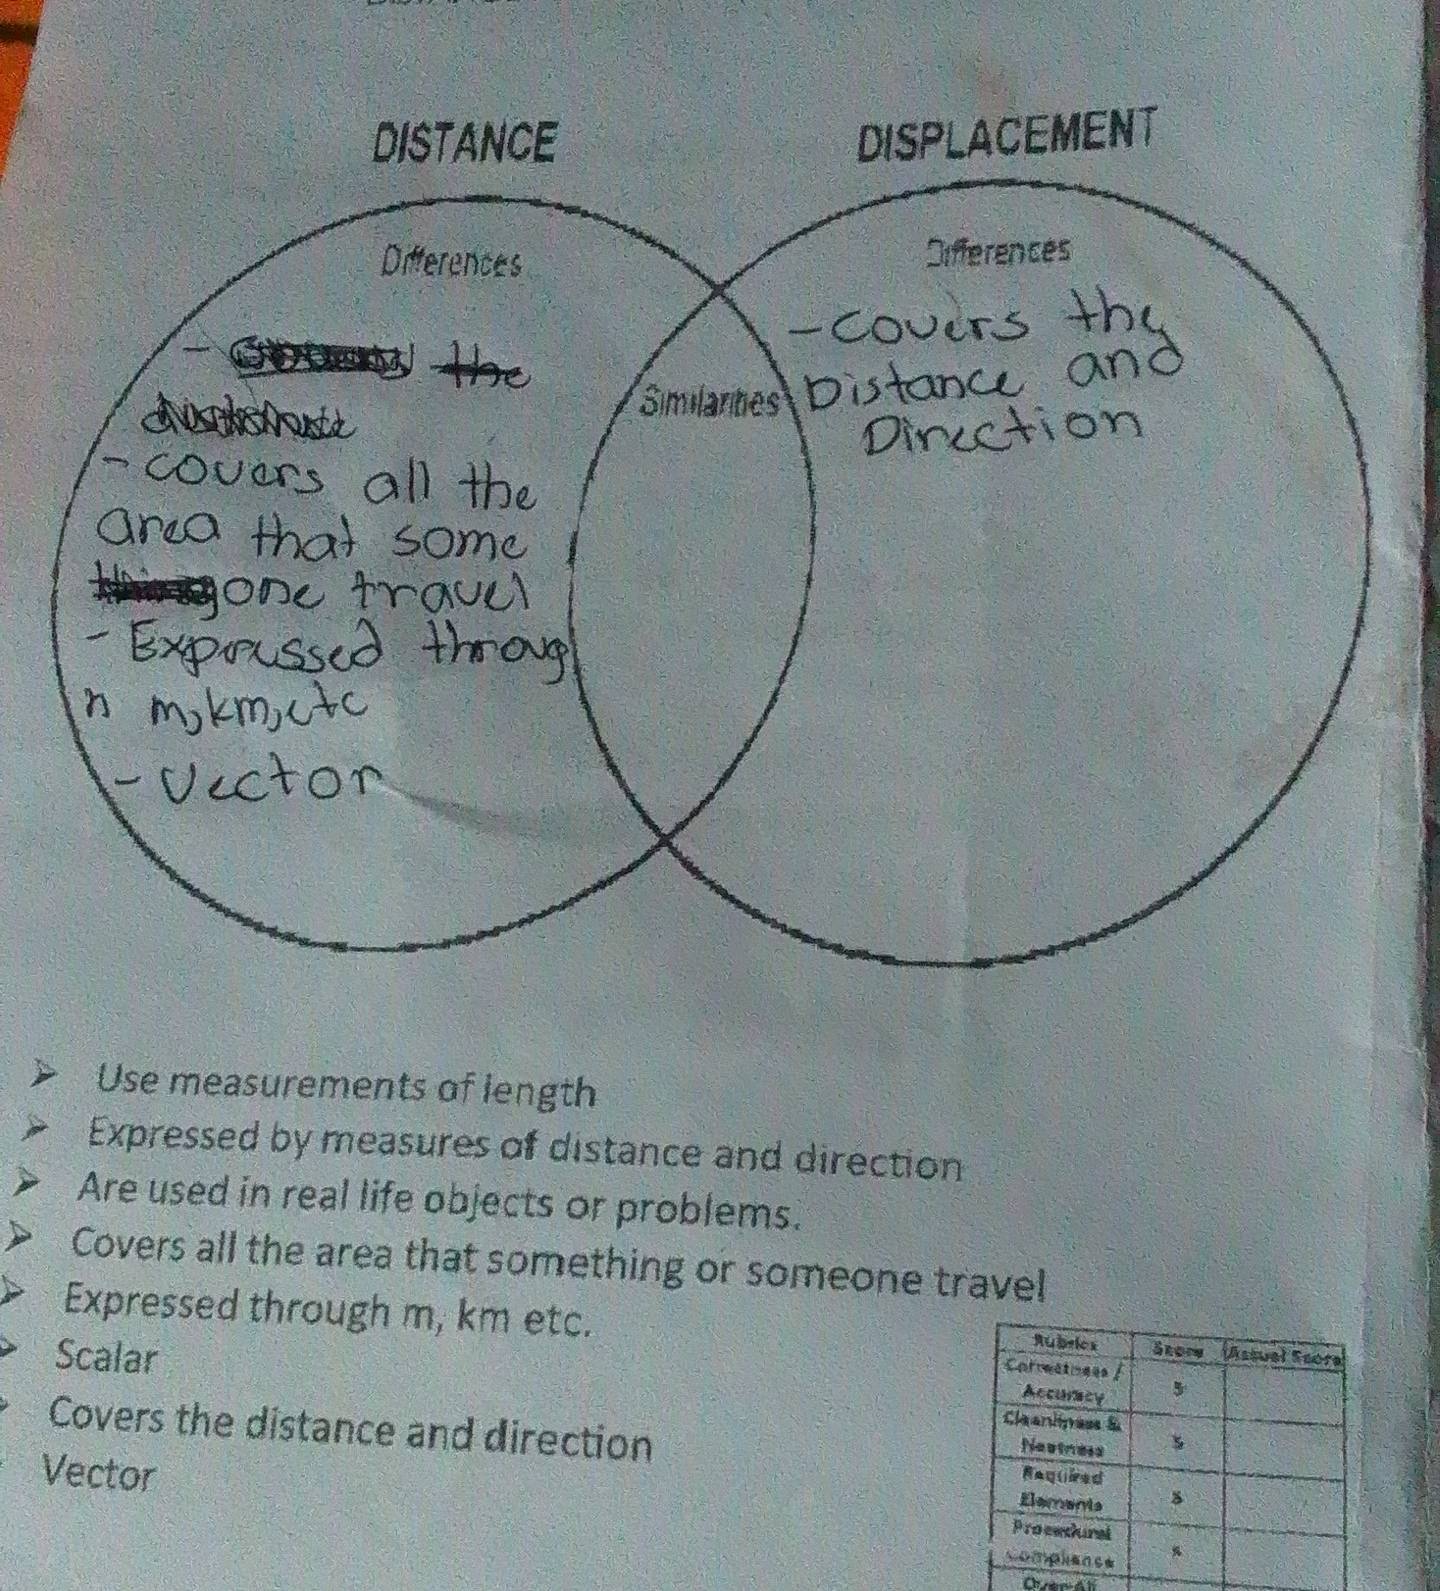 DISTANCE
DISPLACEMENT
Differences
the
- covers all the
area that some
one travel
- Expressed throug
h m, km, etc
- Vector
Similarities
Differences
- covers the
Distance and
Direction
Use measurements of length
Expressed by measures of distance and direction
Are used in real life objects or problems.
Covers all the area that something or someone travel
Expressed through m, km etc.
Scalar
Covers the distance and direction
Vector
Rubrics Score Actual Score
Correctness /
Accuracy 5
Cleanliness &
Neatness 5
Required
Elements 5
Procedural
Compliance
Over-All